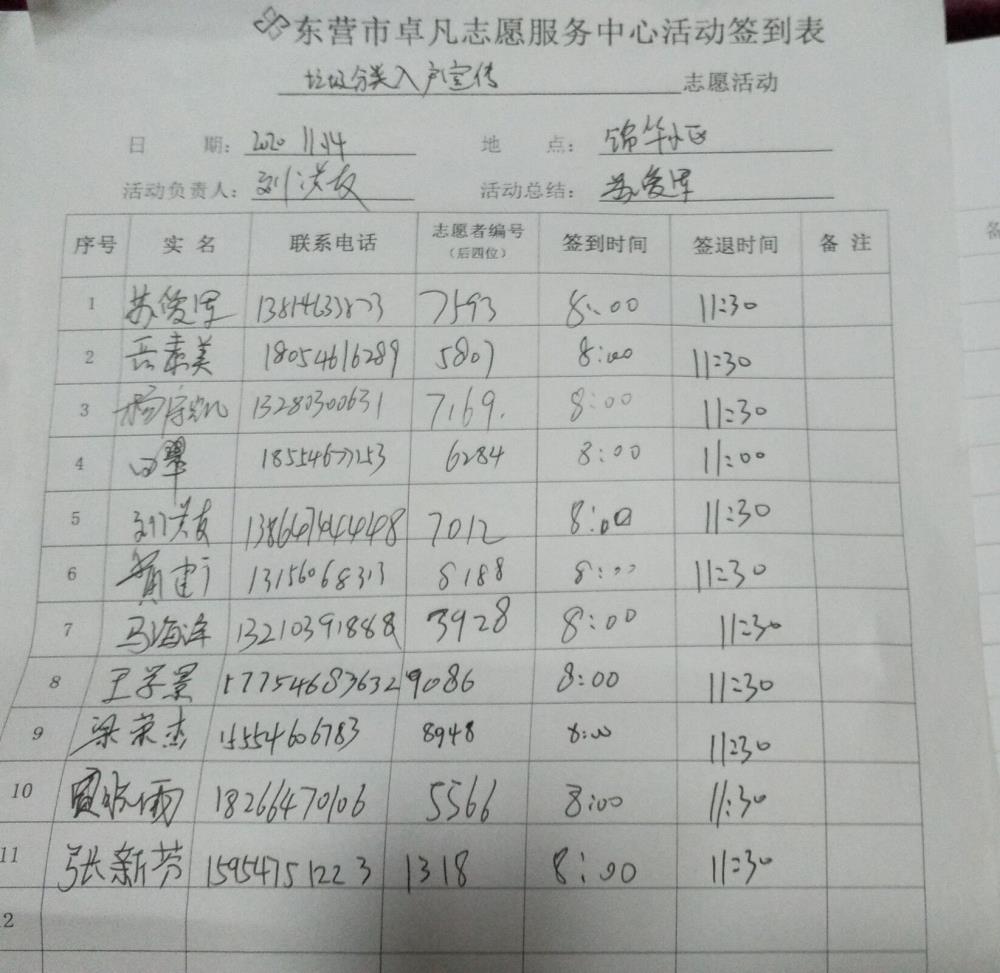 东营市卓凡志愿服务中心活动签到表
垃圾分类入户宣传 志愿活动
日 期: 2020 11.14 地 点: 锦华小区
活动负责人: 刘洪友 活动总结: 苏俊军
序号 实 名 联系电话 志愿者编号 (后四位) 签到时间 签退时间 备 注
1 苏俊军 7593 8:00 11:30
2 岳素美 18054616289 5807 8:00 11:30
3 13280300631 7169. 8:00 11:30
4 6284 8:00 11:00
5 刘洪友 7012 8:00 11:30
6 13156068313 8188 8:00 11:30
7 马海洋 13210391888 3928 8:00 11:30
8 王学景 17754683632 9086 8:00 11:30
9 梁荣杰 15554606783 8948 8:00 11:30
10 18266470106 5566 8:00 11:30
11 张新芳 15954751223 1318 8:00 11:30
2